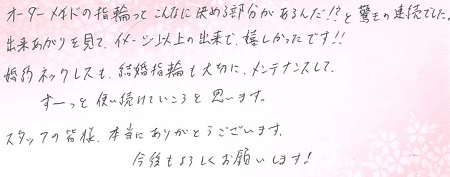 オーダーメイドの指輪って こんなに決める部分があるんだ!?と驚きの連続でした。
出来あがりを見て、イメージ以上の出来で、嬉しかったです!!
婚約ネックレスも、結婚指輪も大切に、メンテナンスして、
ずーっと使い続けていこうと思います。
スタッフの皆様、本当にありがとうございます。
今後もよろしくお願いします!